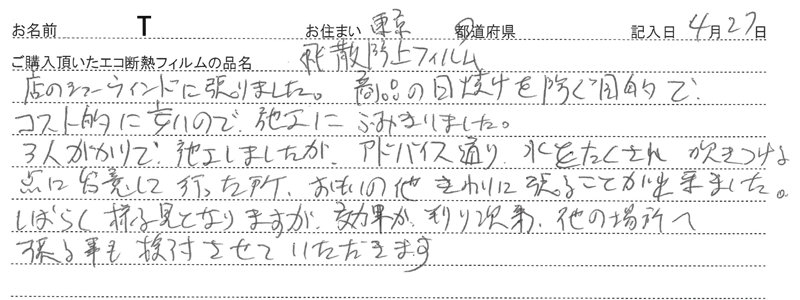 お名前 T お住まい 東京 都道府県 記入日 4月27日
ご購入頂いたエコ断熱フィルムの品名 飛散防止フィルム
店のショーウィンドに張りました。 商品の日焼けを防ぐ目的で
コスト的に安いので、施工にふみきりました。
3人がかりで、施工しましたが、アドバイス通り、水をたくさん吹きつける
点に留意して行った所、おもいの他きれいに張ることが出来ました。
しばらく様子見となりますが、効果が判り次第、他の場所へ
張る事も検討させていただきます